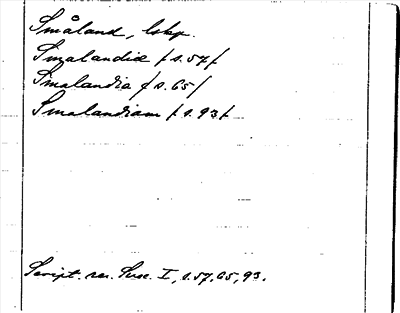 Småland, lskp.
Smalandiæ /s.57/
Smalandia /s.65/
Smalandiam /s.93/
Script. rer. Suec. I, s.57, 65, 93.